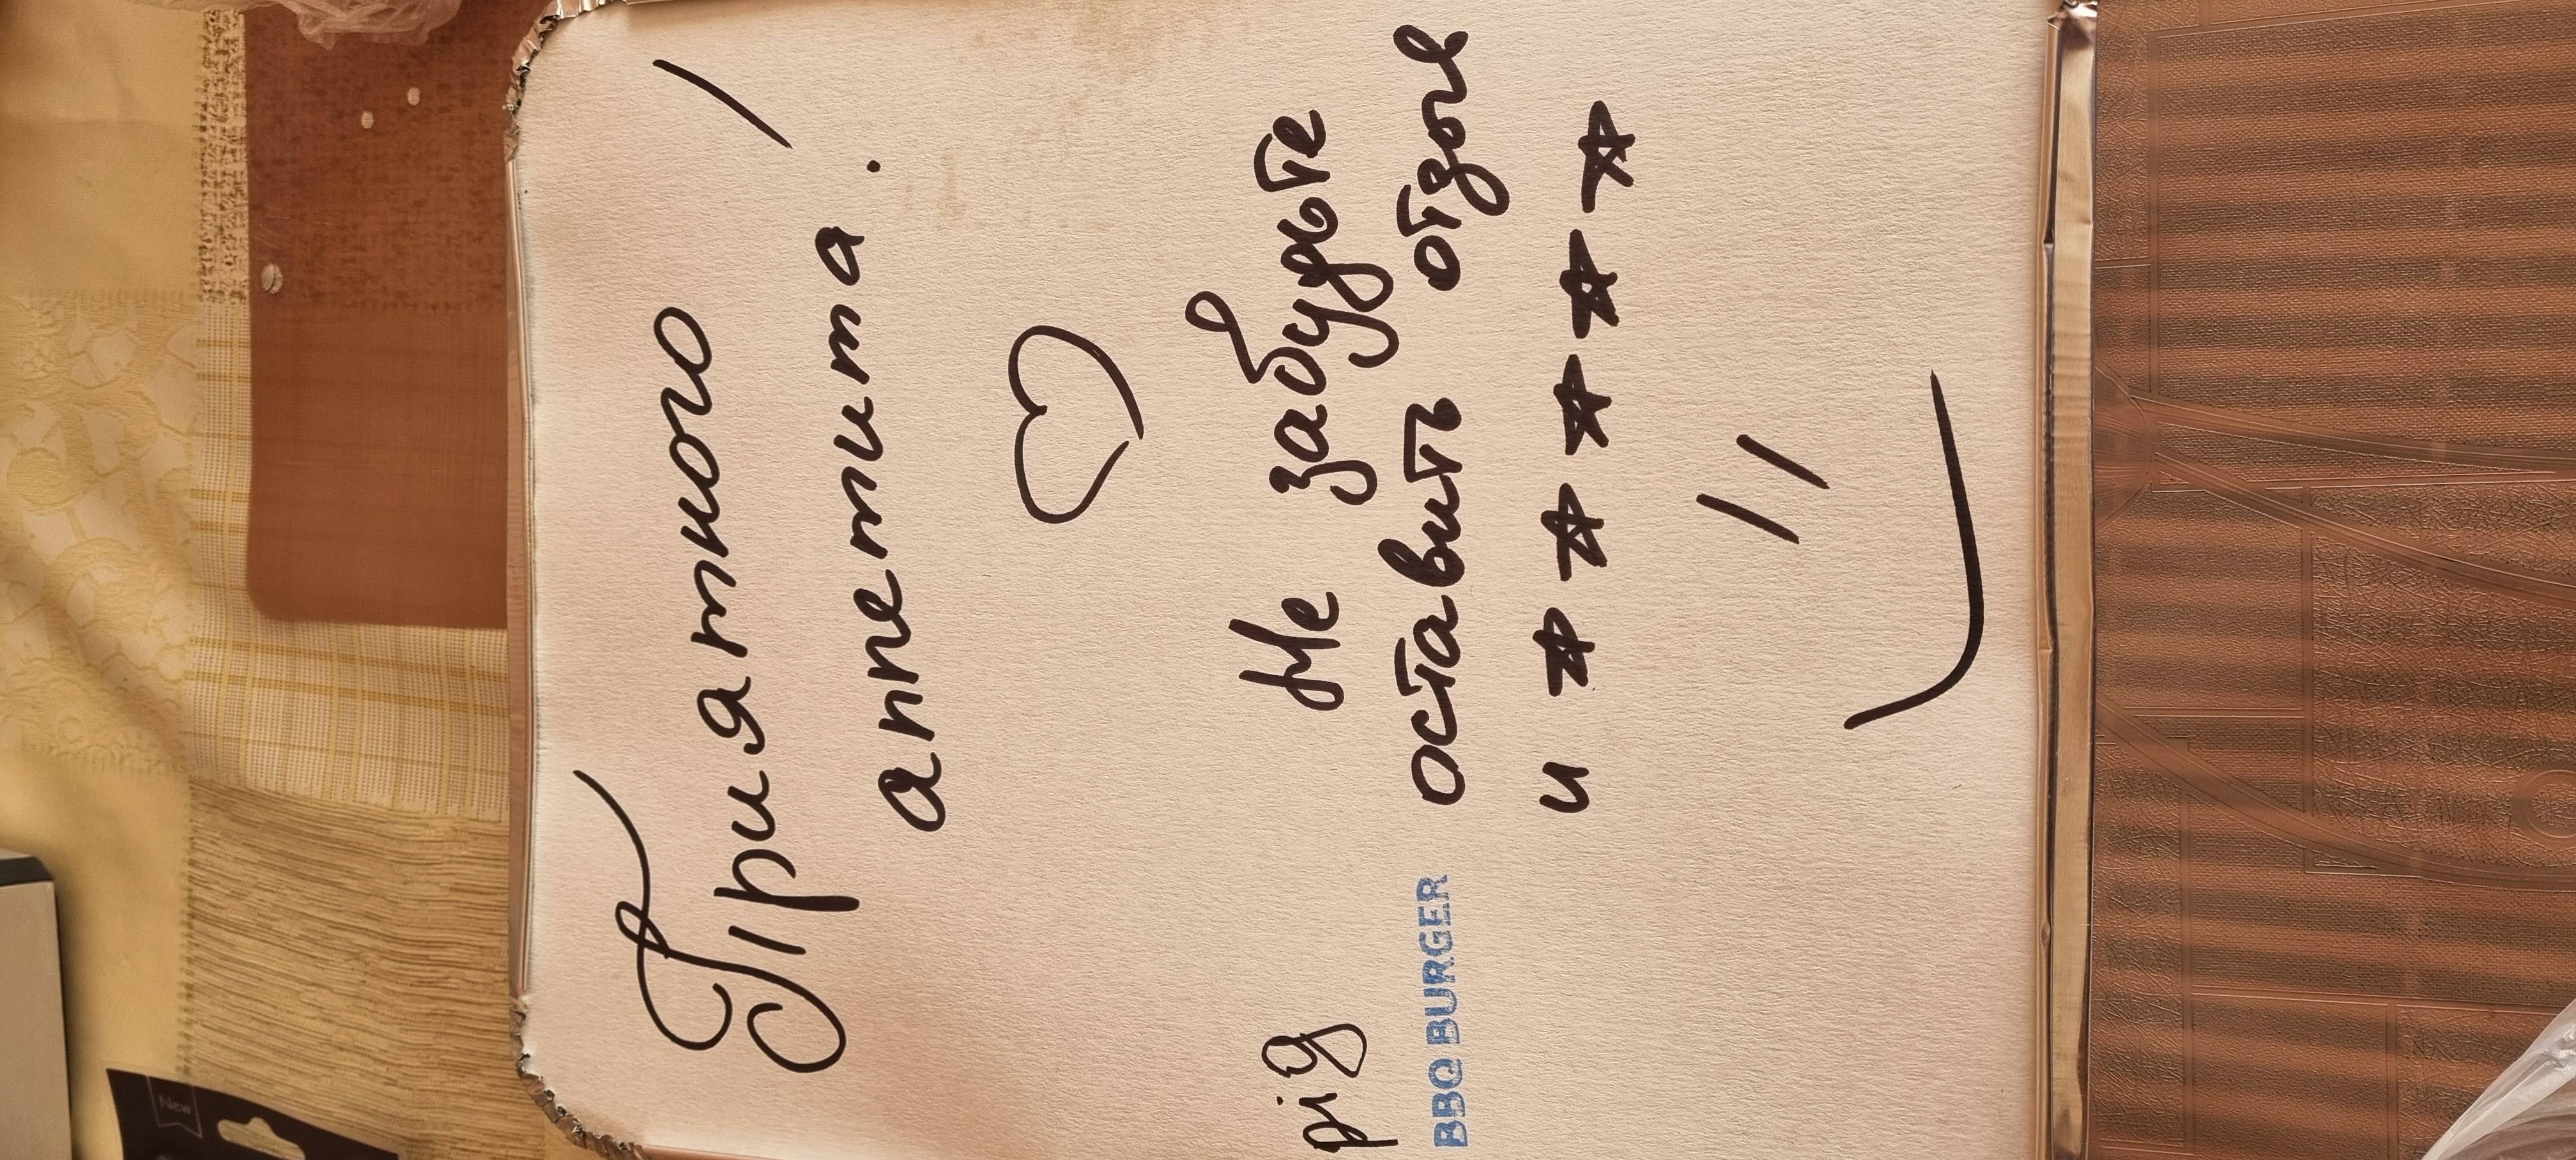 Приятного
аппетита!
♡
Не забудьте
оставить отзыв
и ★★★★★
pig
BBQ BURGER
New